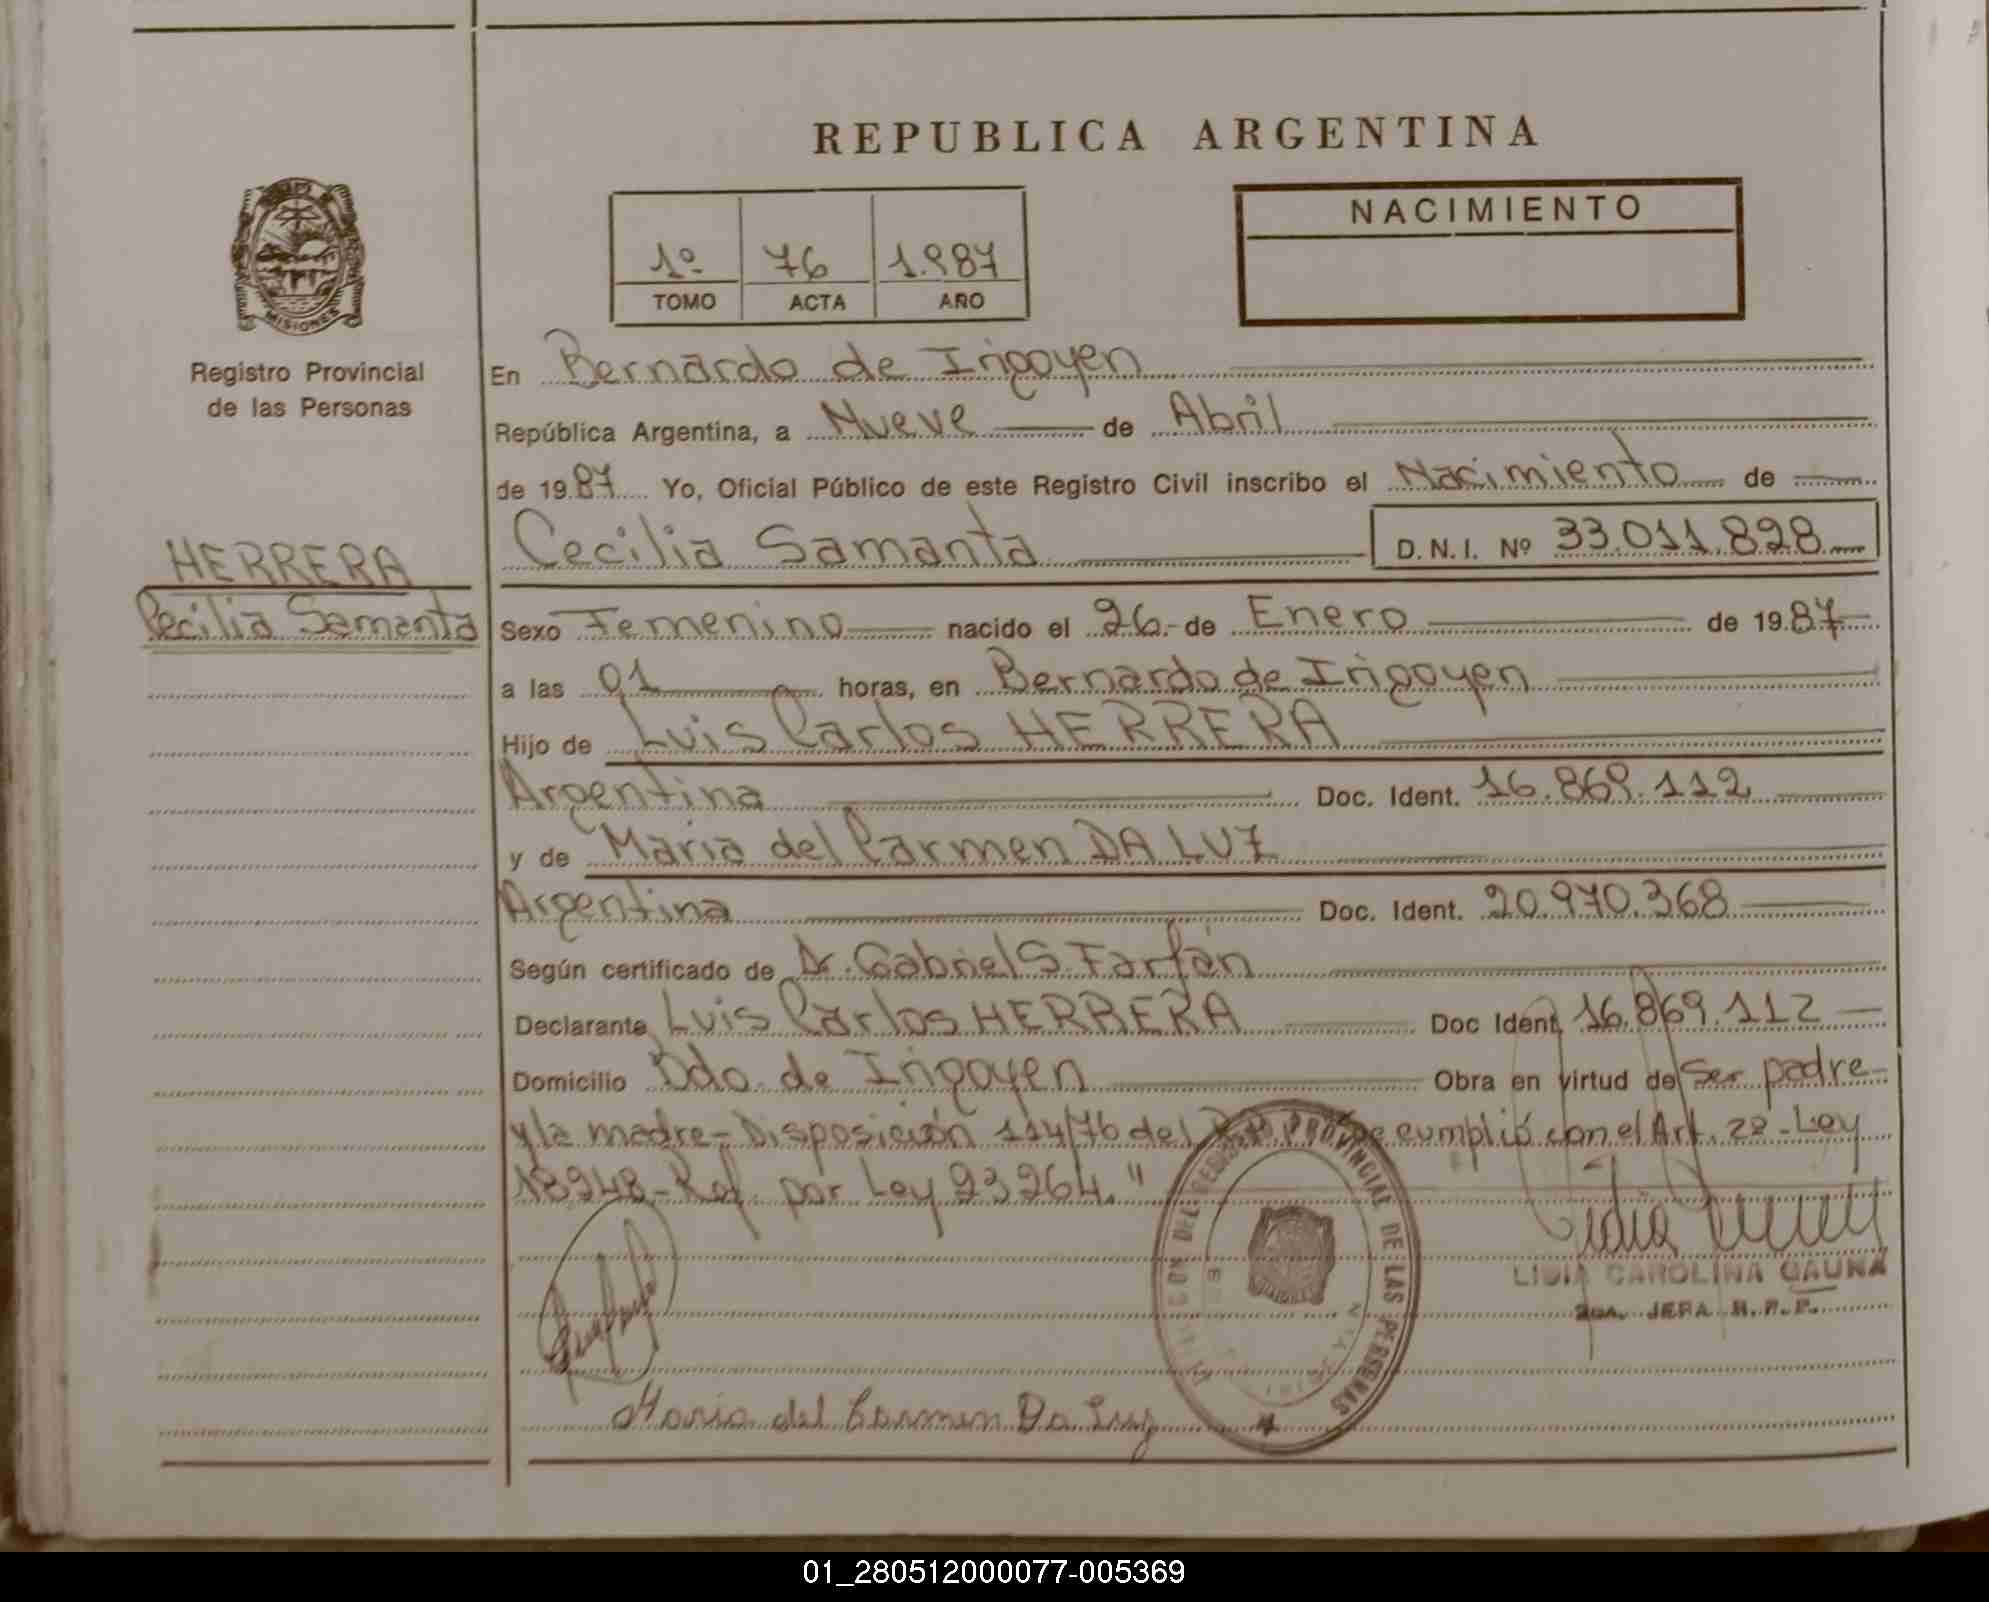 REPUBLICA ARGENTINA
MISIONES
Registro Provincial
de las Personas
1º 76 1.987
TOMO ACTA AÑO
NACIMIENTO
En Bernardo de Irigoyen
República Argentina, a Nueve de Abril
de 1987 Yo, Oficial Público de este Registro Civil inscribo el Nacimiento de
HERRERA
Cecilia Samanta
Cecilia Samanta D.N.I. Nº 33.011.828
Sexo Femenino nacido el 26 de Enero de 1987
a las 01 horas, en Bernardo de Irigoyen
Hijo de Luis Carlos HERRERA
Argentina Doc. Ident. 16.869.112
y de Maria del Carmen DA LUZ
Argentina Doc. Ident. 20.970.368
Según certificado de Dr. Gabriel S. Farfán
Declarante Luis Carlos HERRERA Doc Ident 16.869.112
Domicilio Bdo. de Irigoyen Obra en virtud de Ser padre
y la madre - Disposición 114/76 del Se cumplió con el Art. 2º - Ley
18248 - Ref. por Ley 23264."
DEL REGISTRO PROVINCIAL DE LAS PERSONAS
LIDIA CAROLINA GAUNA
JEFA R.P.P.
Maria del Carmen Da Luz
01_280512000077-005369